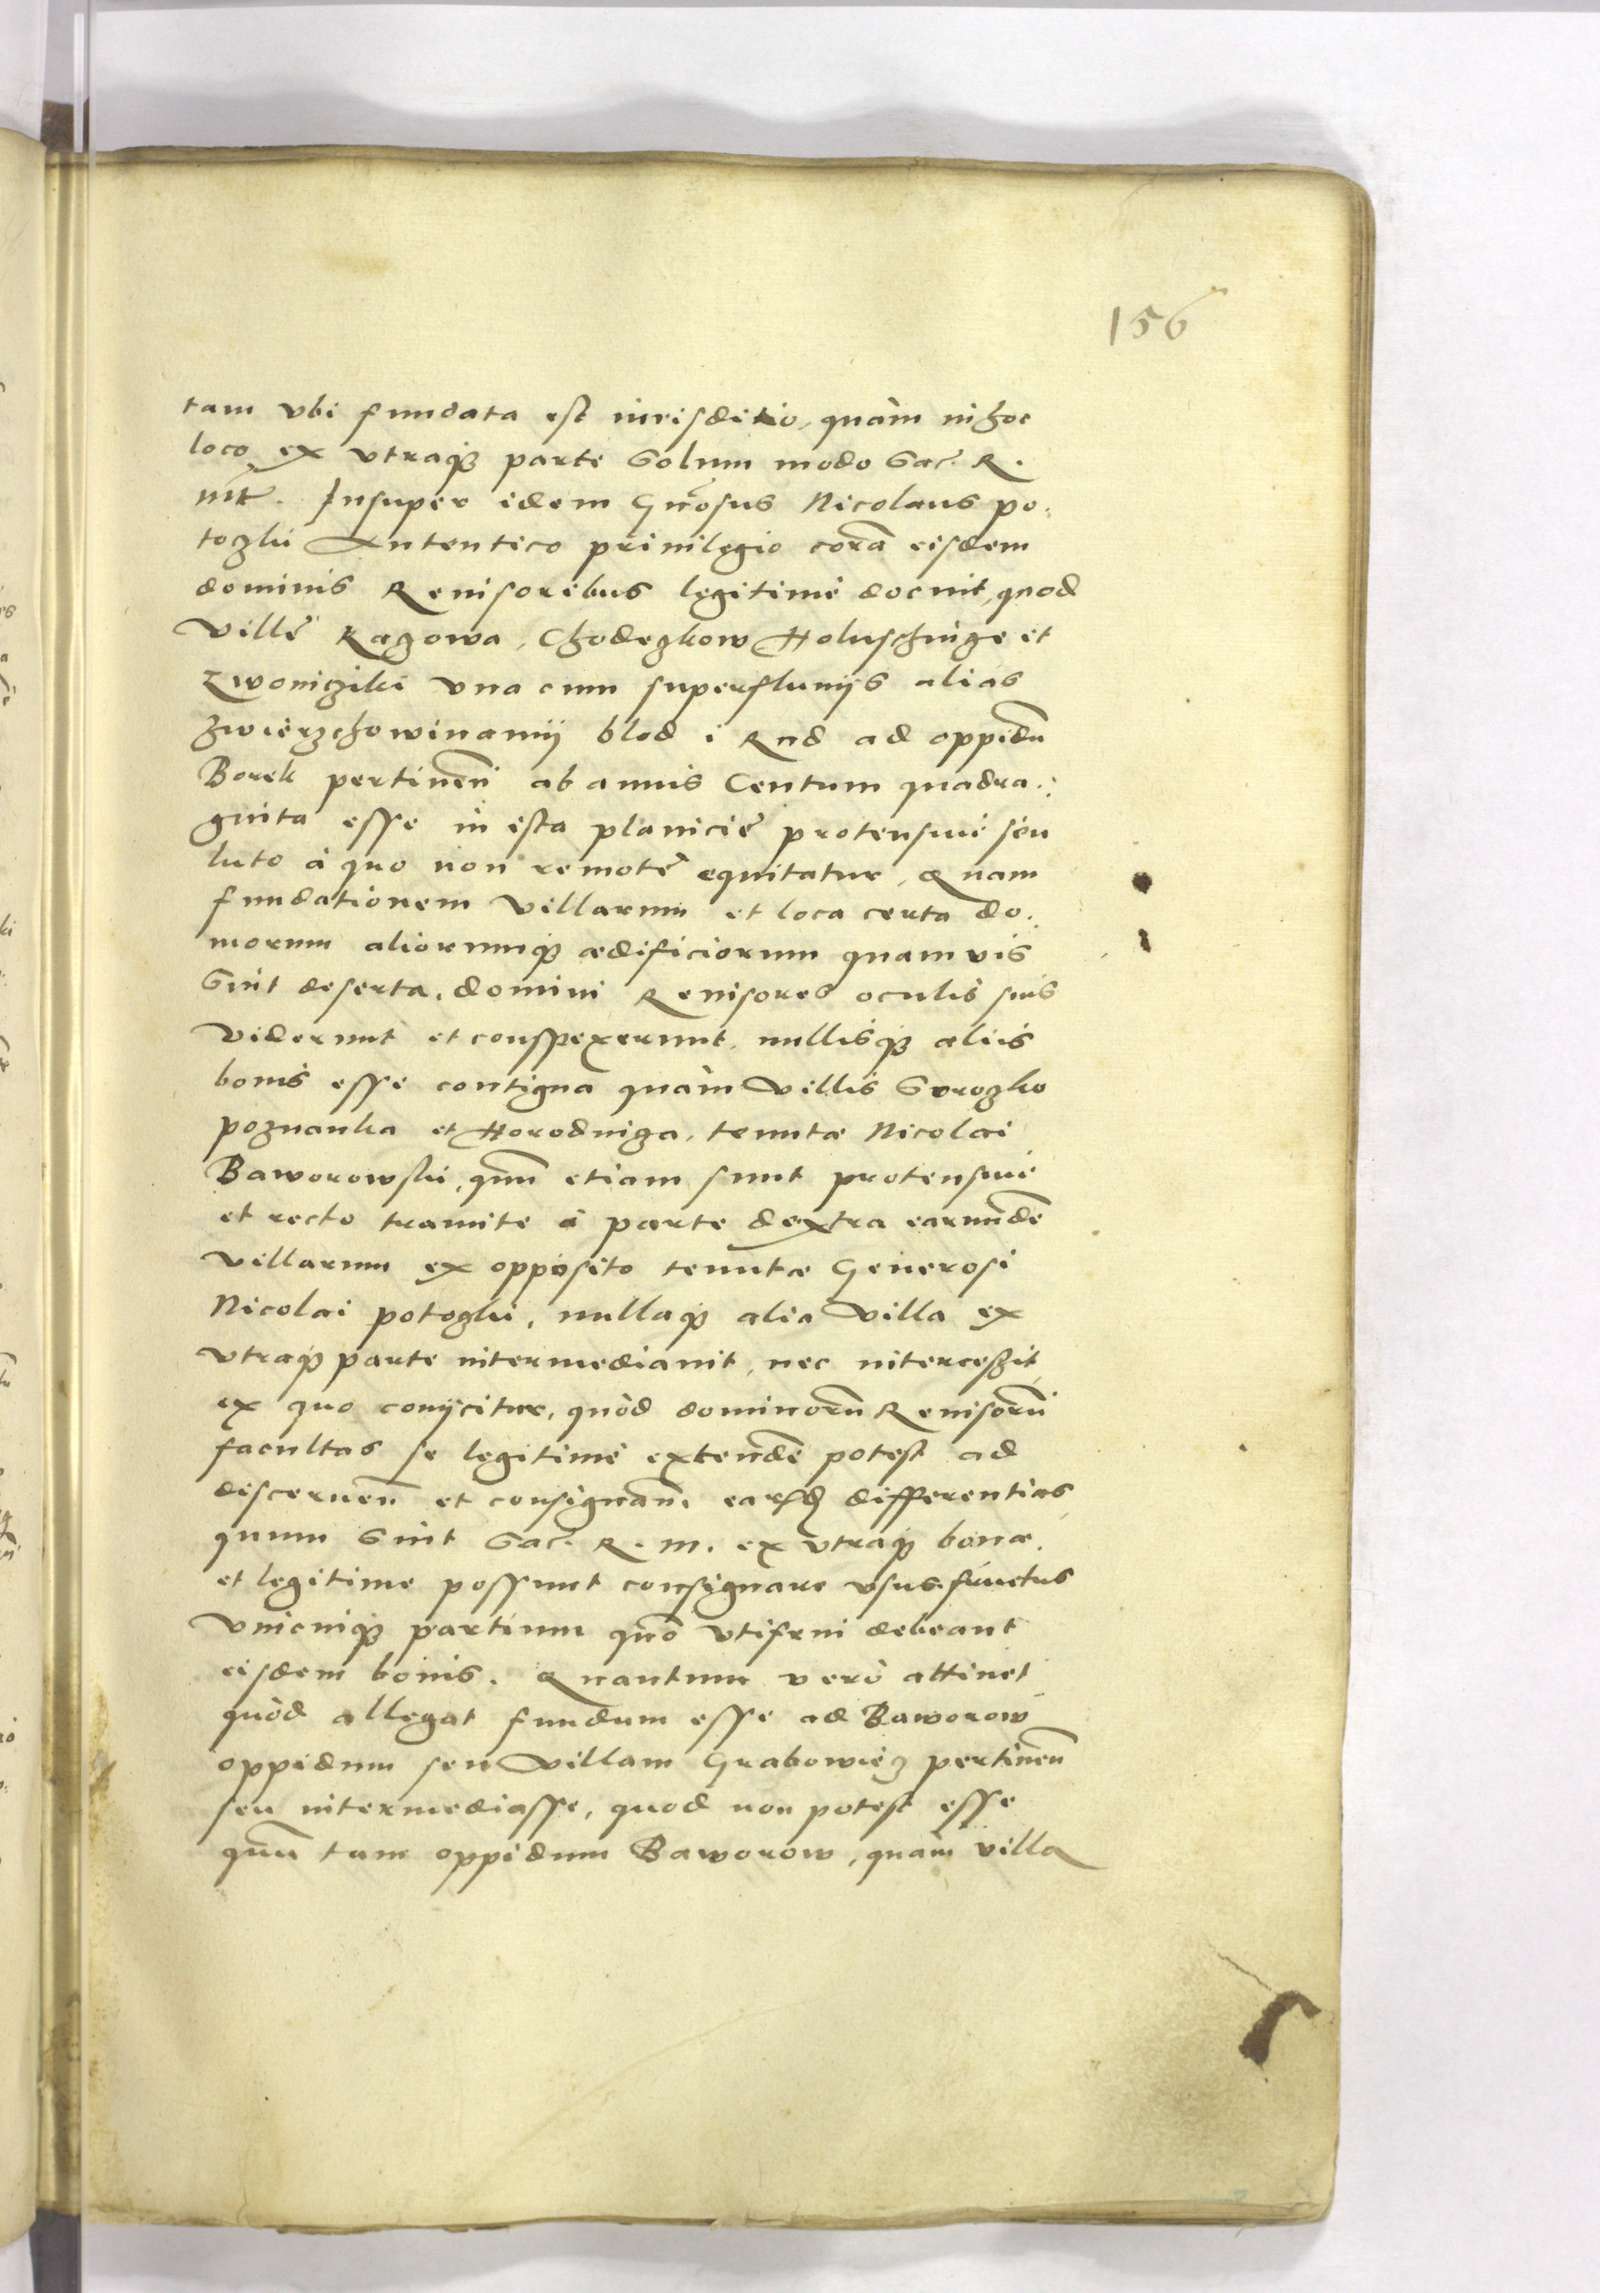 156
tam vbi fundata est iurisditio, quàm in hoc
loco ex vtraq₃ parte Solum modo Sac. R.
Insuper idem Gnosus Nicolaus po:
toczki Autentico priuilegio corā eisdem
dominis Reuisoribus legitimè docuit, quod
Villę Razowa, Chodeczkow Holuschincze et
Zwoniczki vna cum superfluuijs alias
zwierzchowinamij blod i Rud ad oppidū
Borek pertineñ ab annis Centum quadra:
guita esse in ista planicie protensiuè seu
luto à quo non remotè equitatur, Quam
fundationem Villarum et loca certa do:
morum aliorumq₃ ædificiorum quamuis
Sint deserta, domini Reuisores oculis suis
Viderunt et conspexerunt, nullisq₃ aliis
bonis esse contigua quàm Villis Soroczko
poznanka et Horodnicza, tenutæ Nicolai
Baworowski, quū etiam sunt protensiuè
et recto tramite à parte dextra earundē
Villarum ex opposito tenutæ Generosi
Nicolai potoczki, nullaq₃ alia Villa ex
vtraq₃ parte intermediauit, nec intercessit,
ex quo conijcitur, quòd dominorū Reuisorū
facultas se legitimè extendē potest ad
discerneñ et consignañ. differentias,
quum Sint Sac. R. M. ex vtraq₃ bona,
et legitime possunt consignare vsus fructus
Vnicuiq₃ partium quō vtifrui debeant
eisdem bonis. Quantum verò attinet
quòd allegat fundum esse ad Baworow
oppidum seu Villam Grabowiecz pertineñ
seu intermediasse, quod non potest esse
quū tam oppidum Baworow, quàm villa